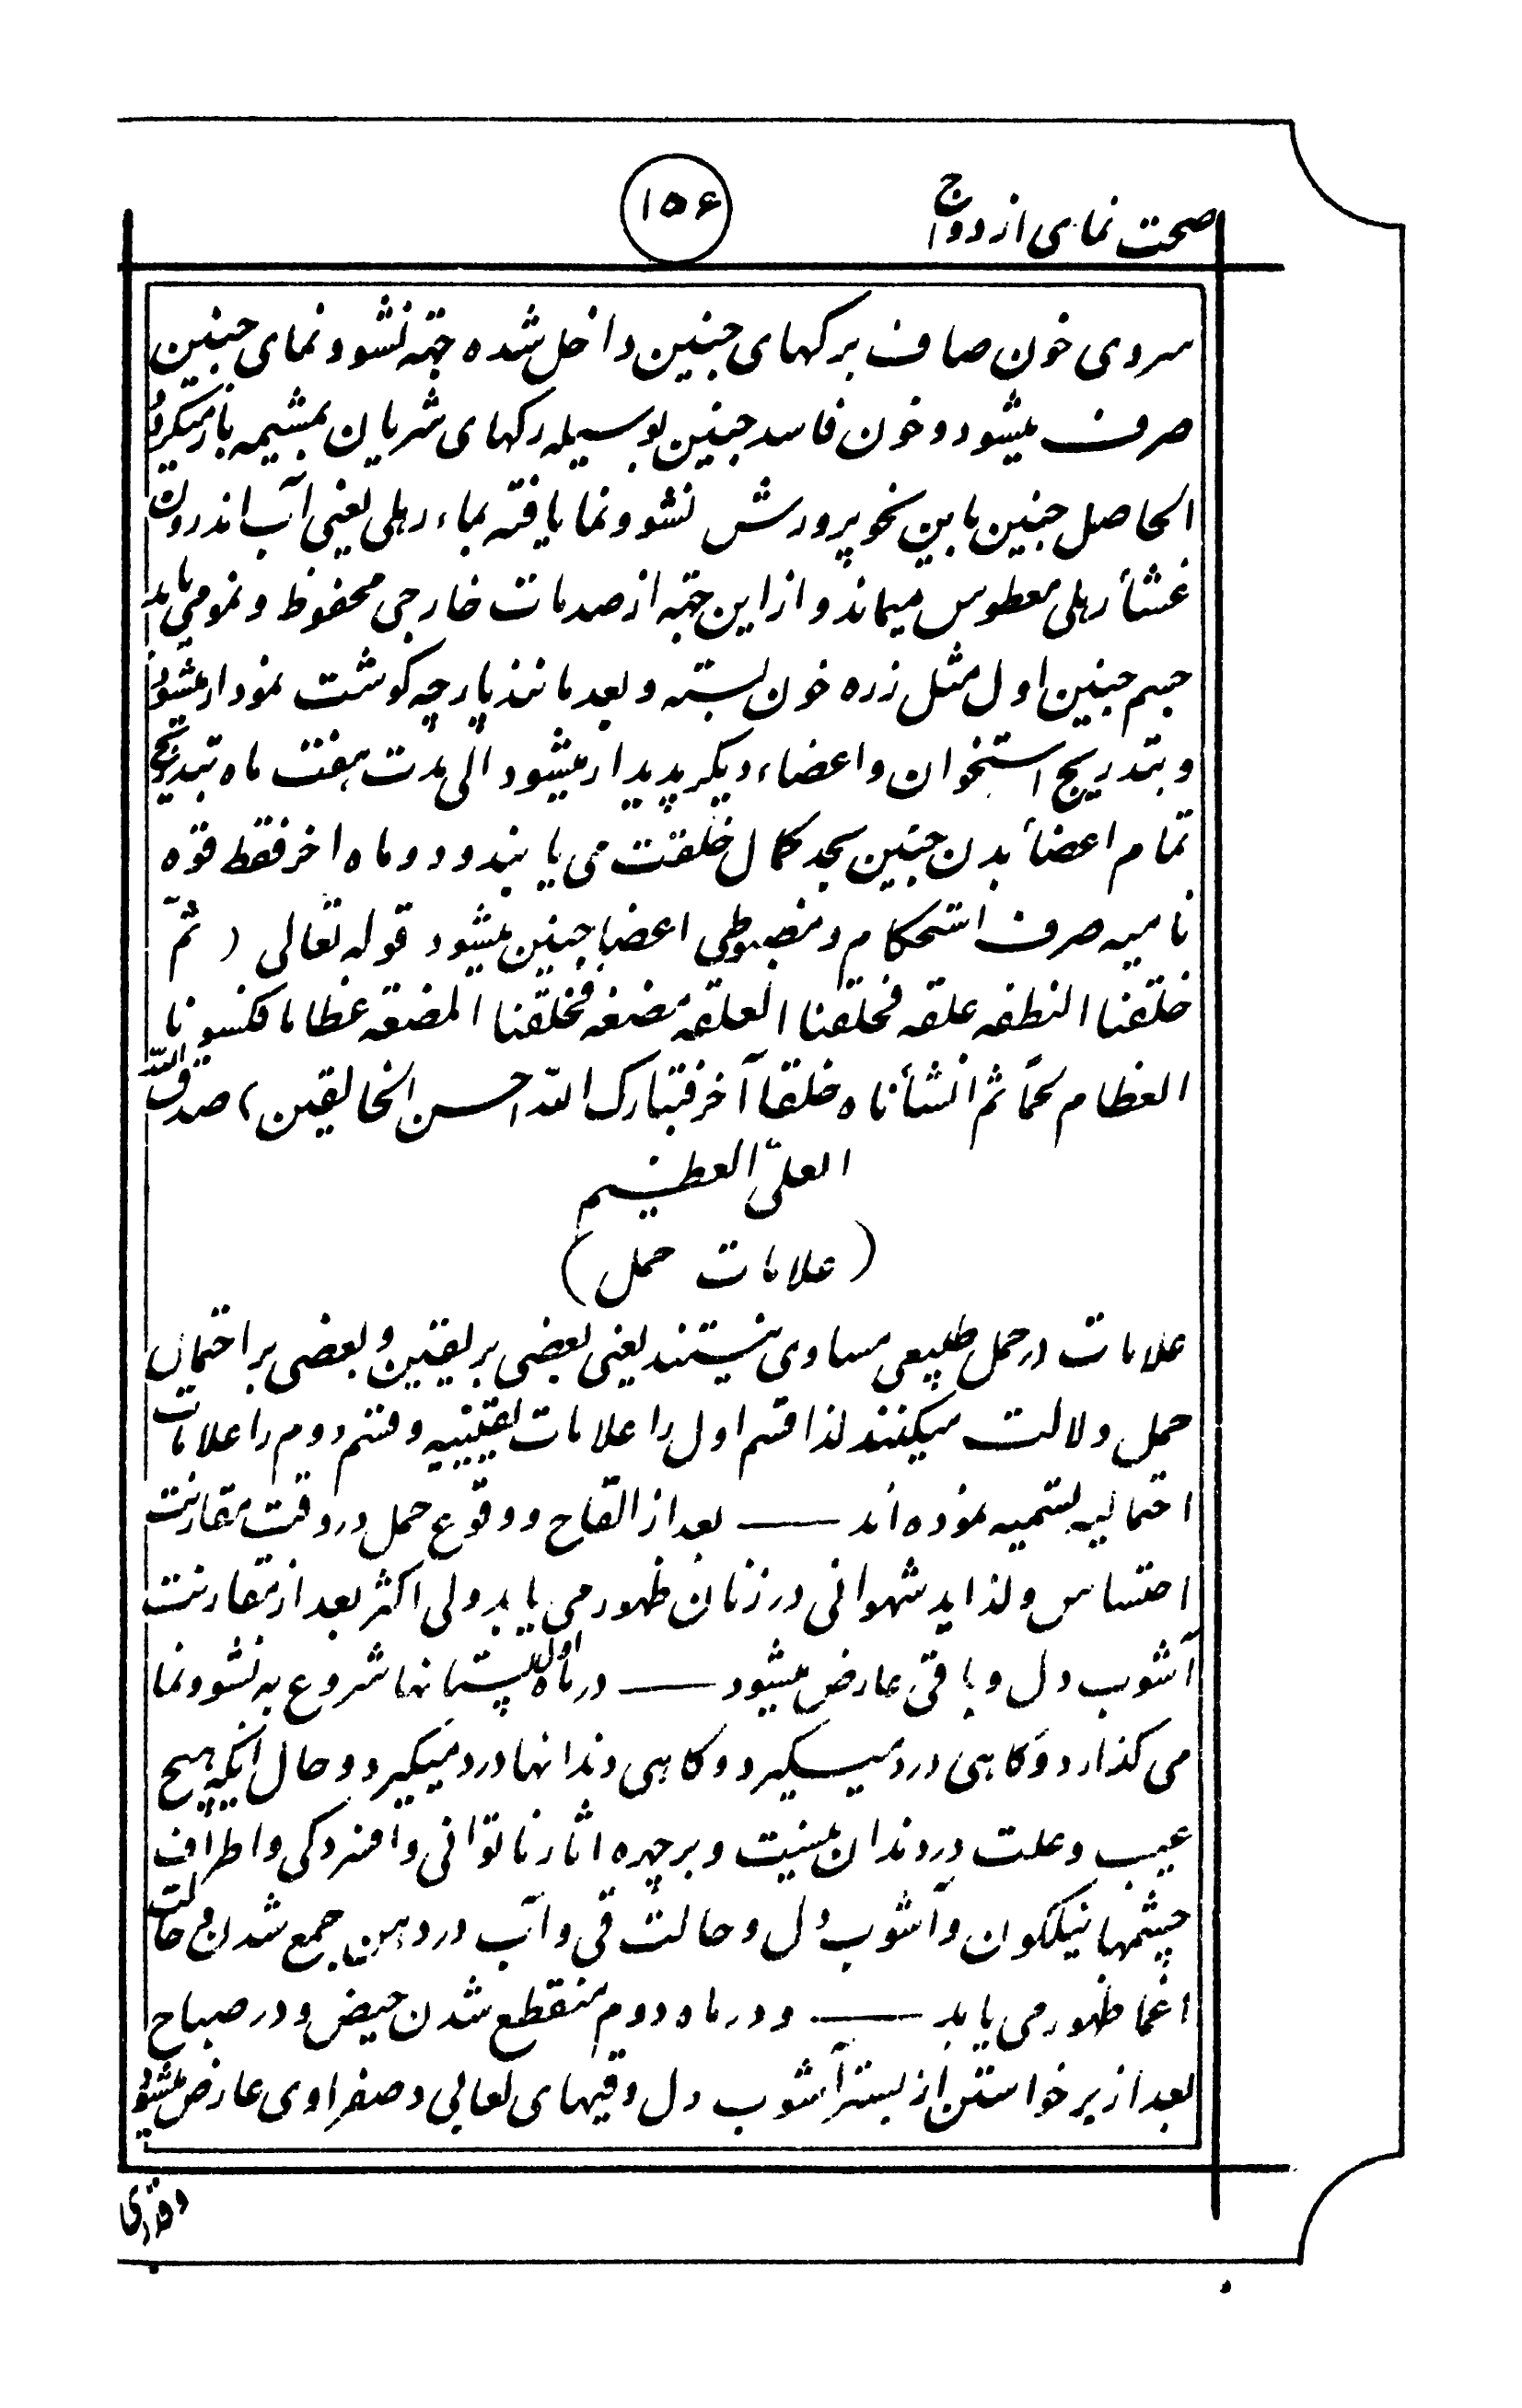 صحت نمای ازدواج
۱۵۶
سروی خون صاف برکهای جنین داخل شده جهته نشو و نمای جنین
صرف میشود و خون فاسد جنین بوسیله رکهای شریان بمشیمه بازمیکردد
الحاصل جنین باین نحو پرورش نشو و نما یافته بماء رهلی یعنی آب اندرون
غشأ رهلی مغطوس میماند و از این جهته از صدمات خارجی محفوظ و نمو می یابد
جسم جنین اول مثل زره خون بسته و بعد مانند پارچه کوشت نمودار میشود
و بتدریج استخوان و اعضاء دیکر پدیدار میشود الی مدت هفت ماه بتدریج
تمام اعضأ بدن جنین بحد کمال خلقت می یابند و دو ماه اخر فقط قوّه
نامیه صرف استحکام و مضبوطی اعضا جنین میشود قوله تعالی ( ثمّ
خلقنا النطفه علقه فخلقنا العلقه مضغه فخلقنا المضغه عظاما فکسونا
العظام لحمًا ثم انشأناه خلقا آخر فتبارک الله احسن الخالقین ) صدق الله
العلیّ العظیم
( علامات حمل )
علامات در حمل طبیعی مساوی نیستند یعنی بعضی بر یقین و بعضی بر احتمال
حمل دلالت میکنند لذا قسم اول را علامات یقینیه و قسم دوم را علامات
احتمالیه تسمیه نموده اند —— بعد از القاح و وقوع حمل در وقت مقارنت
احتساس و لذاید شهوانی در زنان ظهور می یابد ولی اکثر بعد از مقارنت
آشوب دل و یا قی عارض میشود —— در ماه اول پستانها شروع به نشو و نما
می کذارد و کاهی درد میکیرد و کاهی دندانها درد میکیرد و حال آنکه هیچ
عیب و علت در دندان نیست و بر چهره اثار ناتوانی و افسردکی و اطراف
چشمها نیلکون و آشوب دل و حالت قی و آب در دهن جمع شدن و حالت
اغما ظهور می یابد —— و در ماه دوم منقطع شدن حیض و در صباح
بعد از برخواستن از بستر آشوب دل و قیهای لعابی و صفراوی عارض میشود